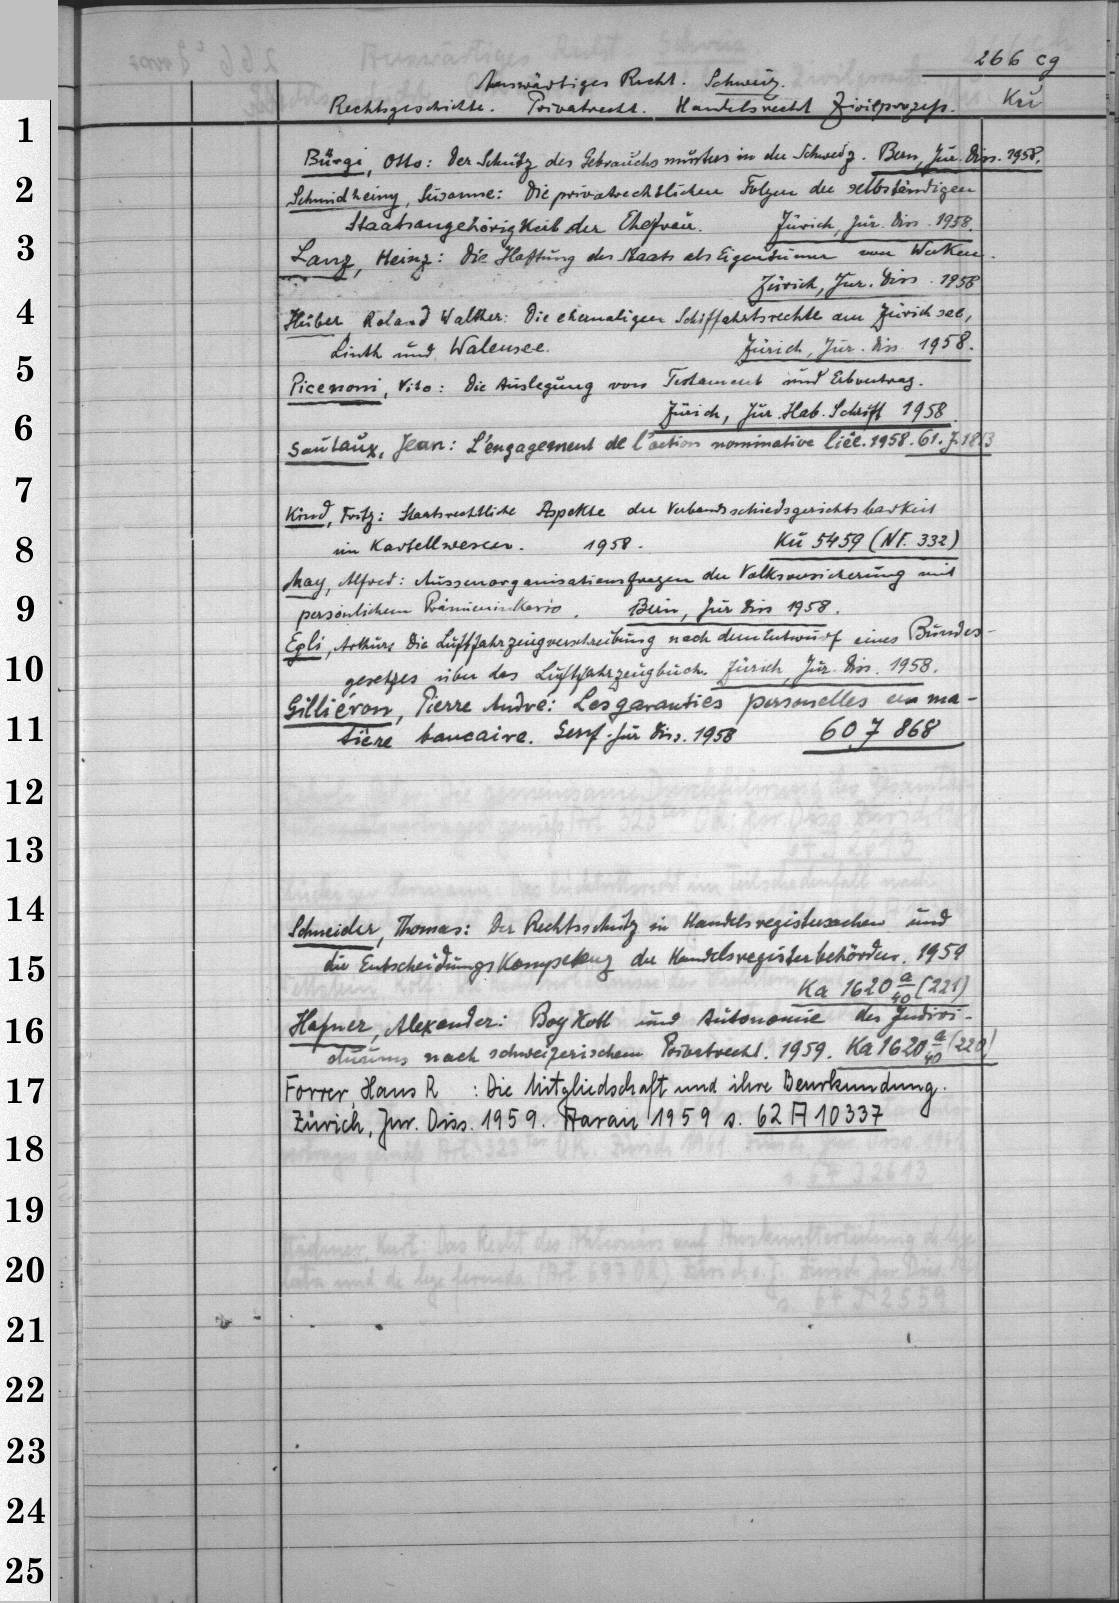 266 cg
Auswärtiges Recht. Schweiz.
Rechtsgeschichte. Privatrecht. Handelsrecht Zivilprozess. Kü
1
Bürgi, Otto: Der Schutz des Gebrauchsmusters in der Schweiz. Bern, Jur. Diss. 1958.
2
Schmidheiny, Susanne: Die privatrechtlichen Folgen der selbständigen
Staatsangehörigkeit der Ehefrau. Zürich, Jur. Diss. 1958.
3
Lanz, Heinz: Die Haftung des Staats als Eigentümer von Werken.
Zürich, Jur. Diss. 1958
4
Huber Roland Walther: Die ehemaligen Schiffahrtsrechte am Zürichsee,
Linth und Walensee. Zürich, Jur. Diss 1958.
5
Picenoni, Vito: Die Auslegung von Testament und Erbvertrag.
Zürich, Jur. Hab. Schrift 1958.
6
Sautaux, Jean: L'engagement de l'action nominative liée. 1958. 61. J. 1813
7
Kind, Fritz: Staatsrechtliche Aspekte der Verbandsschiedsgerichtsbarkeit
8
im Kartellwesen. 1958. Kü 5459 (NF. 332)
May, Alfred: Aussenorganisationsfragen der Volksversicherung mit
9
persönlichem Prämieninkasso. Bern, Jur Diss 1958.
Egli, Arthur: Die Luftfahrzeugverschreibung nach dem Entwurf eines Bundes-
10
gesetzes über das Luftfahrzeugbuch. Zürich, Jur. Diss. 1958.
Gilliéron, Pierre André: Les garanties personelles en ma-
11
tière bancaire. Genf. Jur Diss. 1958 60 7 868
12
13
14
Schneider, Thomas: Der Rechtsschutz in Handelsregistersachen und
15
die Entscheidungskompetenz der Handelsregisterbehörden. 1959
Ka 1620 a/40 (221)
16
Hafner, Alexander: Boykott und Autonomie des Indivi-
duums nach schweizerischem Privatrecht. 1959. Ka 1620 a/40 (220)
17
Forrer, Hans R : Die Mitgliedschaft und ihre Beurkundung.
Zürich, Jur. Diss. 1959. Aarau 1959 s. 62 A 10337
18
19
20
21
22
23
24
25